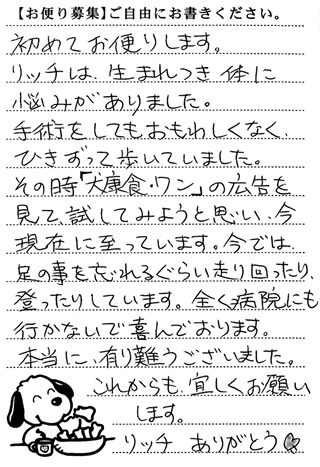 【お便り募集】ご自由にお書きください。
初めてお便りします。
リッチは、生まれつき体に
悩みがありました。
手術をしてもおもわしくなく、
ひきずって歩いていました。
その時「犬康食・ワン」の広告を
見て試してみようと思い、今
現在に至っています。今では、
足の事を忘れるぐらい走り回ったり、
登ったりしています。全く病院にも
行かないで喜んでおります。
本当に、有り難うございました。
これからも、宜しくお願い
します。
リッチ ありがとう